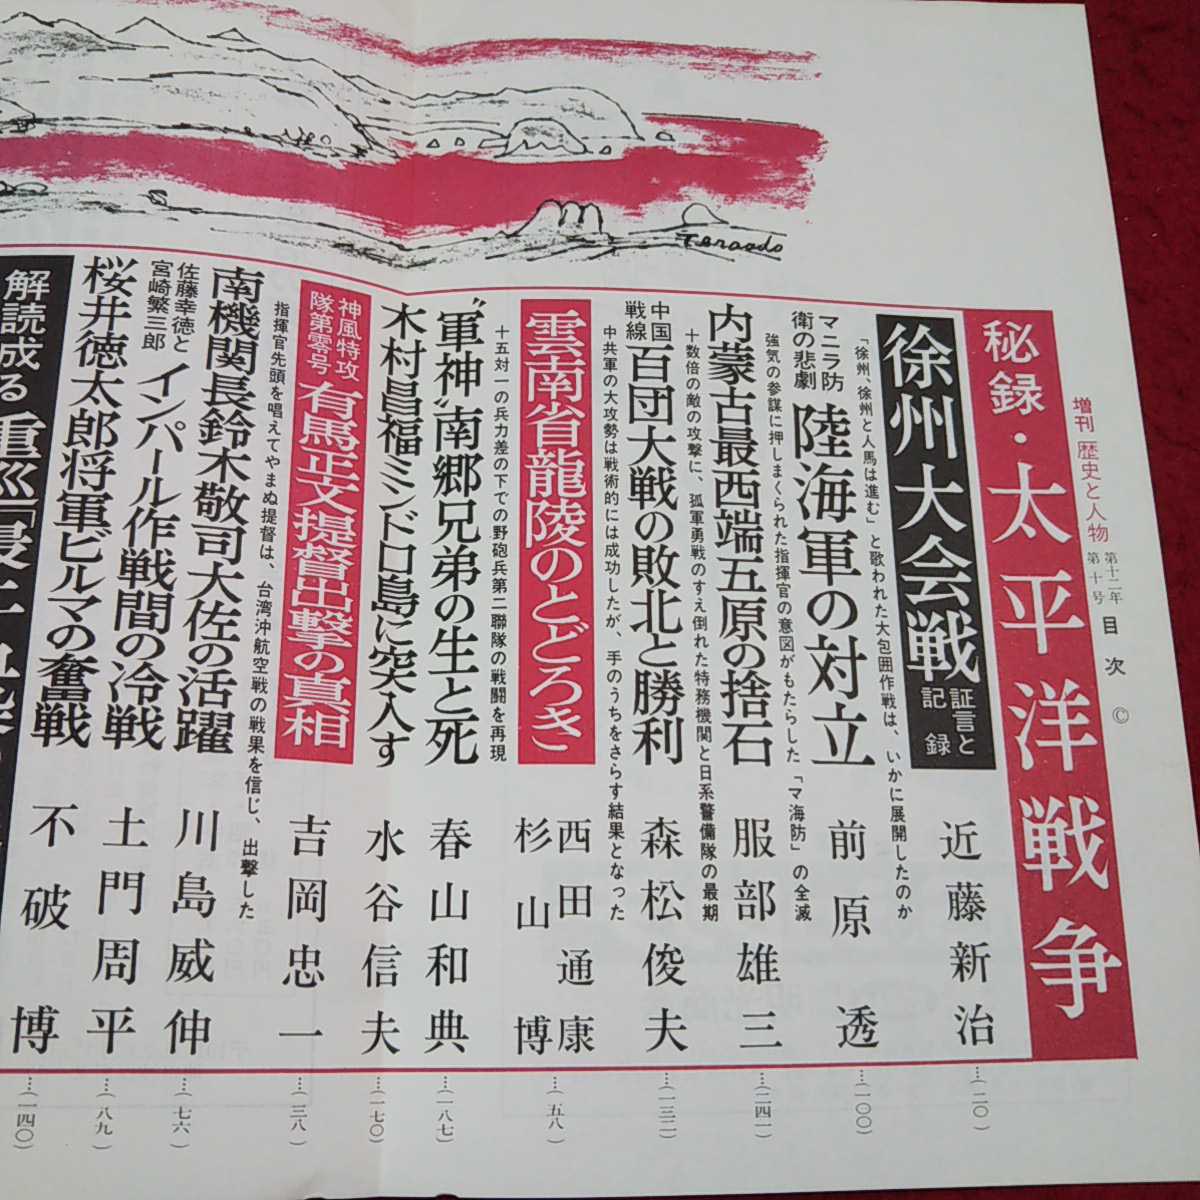 増刊 歴史と人物
第十二年
第十号
目次 ©
秘録・太平洋戦争
徐州大会戦 証言と記録
近藤新治
…(二〇)
「徐州、徐州と人馬は進む」と歌われた大包囲作戦は、いかに展開したのか
マニラ防衛の悲劇 陸海軍の対立
前原透
…(一〇〇)
強気の参謀に押しまくられた指揮官の意図がもたらした「マ海防」の全滅
内蒙古最西端五原の捨石
服部雄三
…(二四一)
十数倍の敵の攻撃に、孤軍勇戦のすえ倒れた特務機関と日系警備隊の最期
中国戦線 百団大戦の敗北と勝利
森松俊夫
…(一三二)
中共軍の大攻勢は戦術的には成功したが、手のうちをさらす結果となった
雲南省龍陵のとどろき
西田通康
杉山博
…(五八)
十五対一の兵力差の下での野砲兵第二聯隊の戦闘を再現
“軍神”南郷兄弟の生と死
春山和典
…(一八七)
木村昌福ミンドロ島に突入す
水谷信夫
…(一七〇)
神風特攻隊第零号 有馬正文提督出撃の真相
吉岡忠一
…(三八)
指揮官先頭を唱えてやまぬ提督は、台湾沖航空戦の戦果を信じ、出撃した
南機関長鈴木敬司大佐の活躍
川島威伸
…(七六)
佐藤幸徳と宮崎繁三郎 インパール作戦間の冷戦
土門周平
…(八九)
桜井徳太郎将軍ビルマの奮戦
不破博
…(一四〇)
解読成る 重巡「最上」
Teraodo